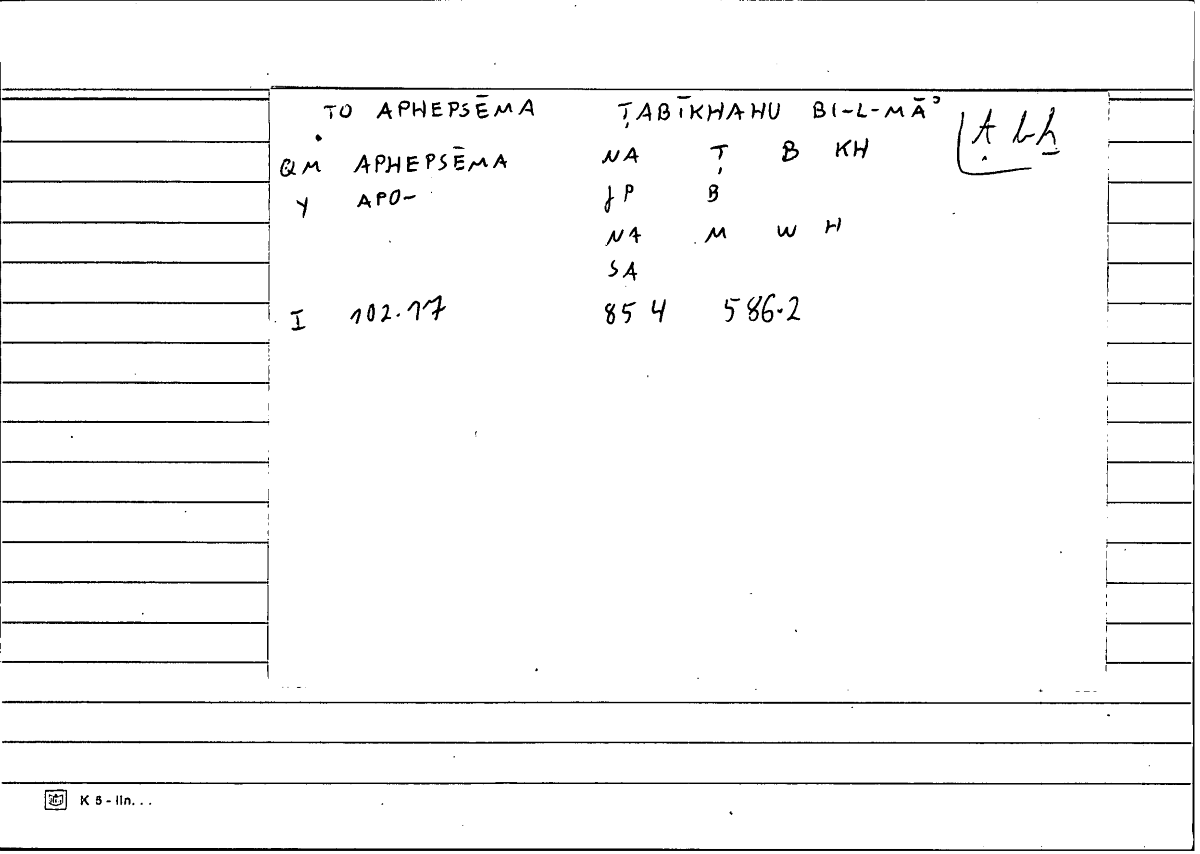 TO APHEPSĒMA ṬABĪKHAHU BI-L-MĀʾ
QM APHEPSĒMA NA Ṭ B KH
Y APO- JP B
NA M W H
SA
I 102.17 854 586.2
K 5 - lin...